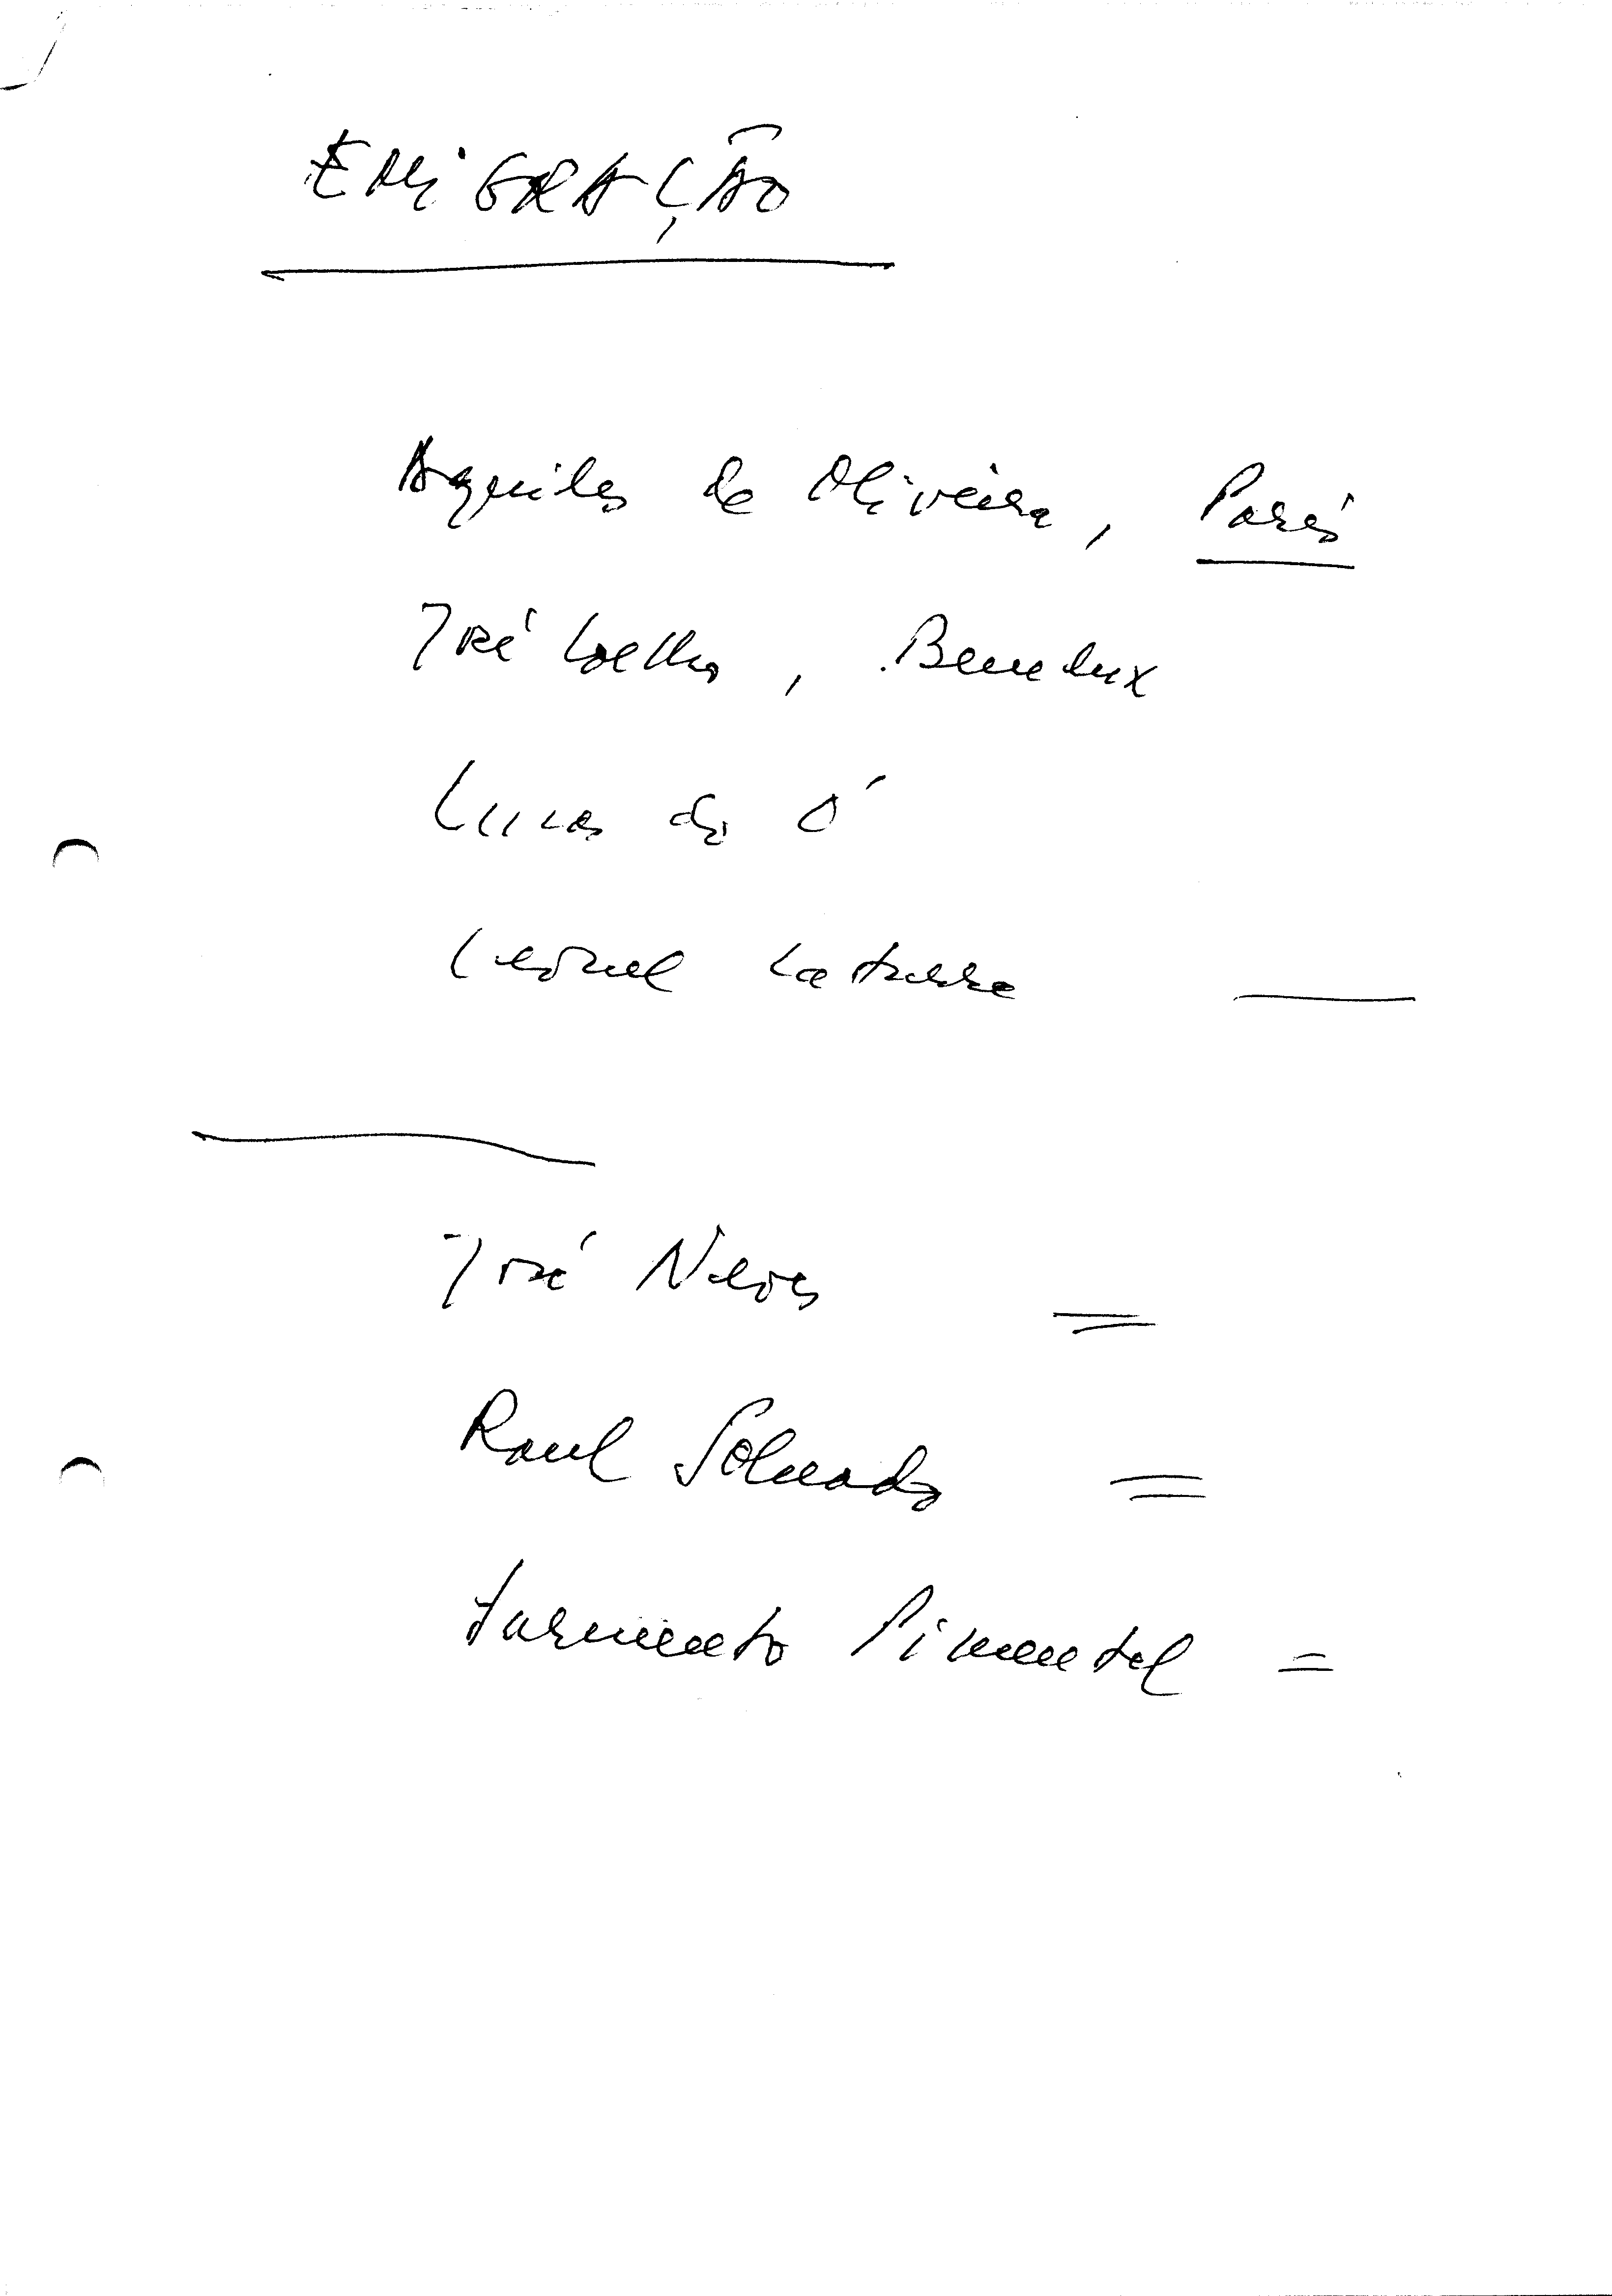 EMIGRAÇÃO
Aquiles de Oliveira, Paris
José Coelho, Benelux
Lucas do Ó
Leonel
José Neves =
Raul Solnado =
Sarmento Pimentel =